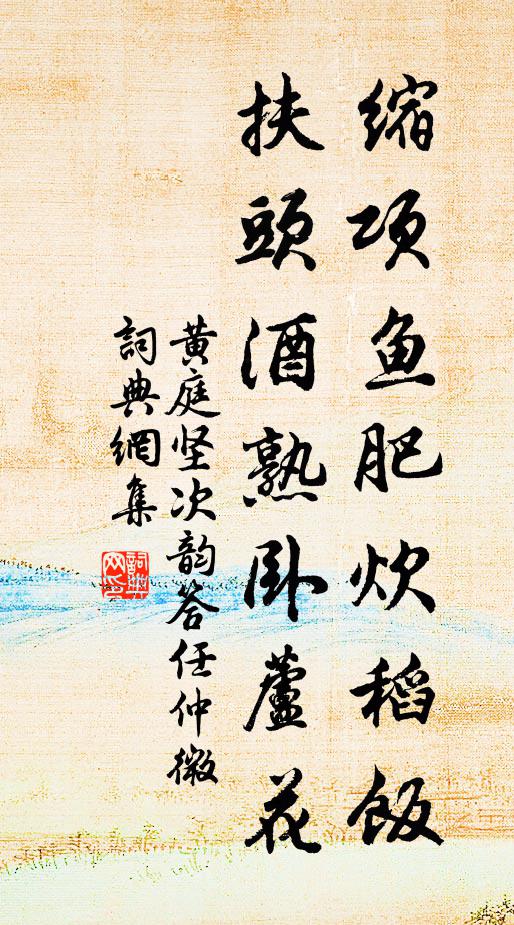 缩项鱼肥炊稻飯
扶頭酒熟卧蘆花
黄庭坚次韵答任仲微
詞典網集